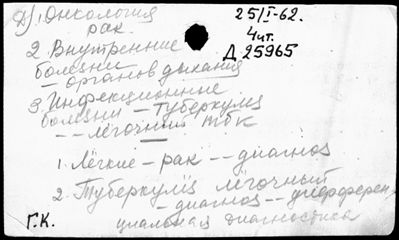 Д) 1. Онкология
рак.
25/I-62.
4чт.
Д 25965
2. Внутренние
болезни
— органов дыхания
3. Инфекционные
болезни — туберкулёз
— — лёгочный тбк
1. Лёгкие — рак — — диагноз
2. Туберкулёз лёгочный
— диагноз — — дифферен,
циальная диагностика
Г.К.